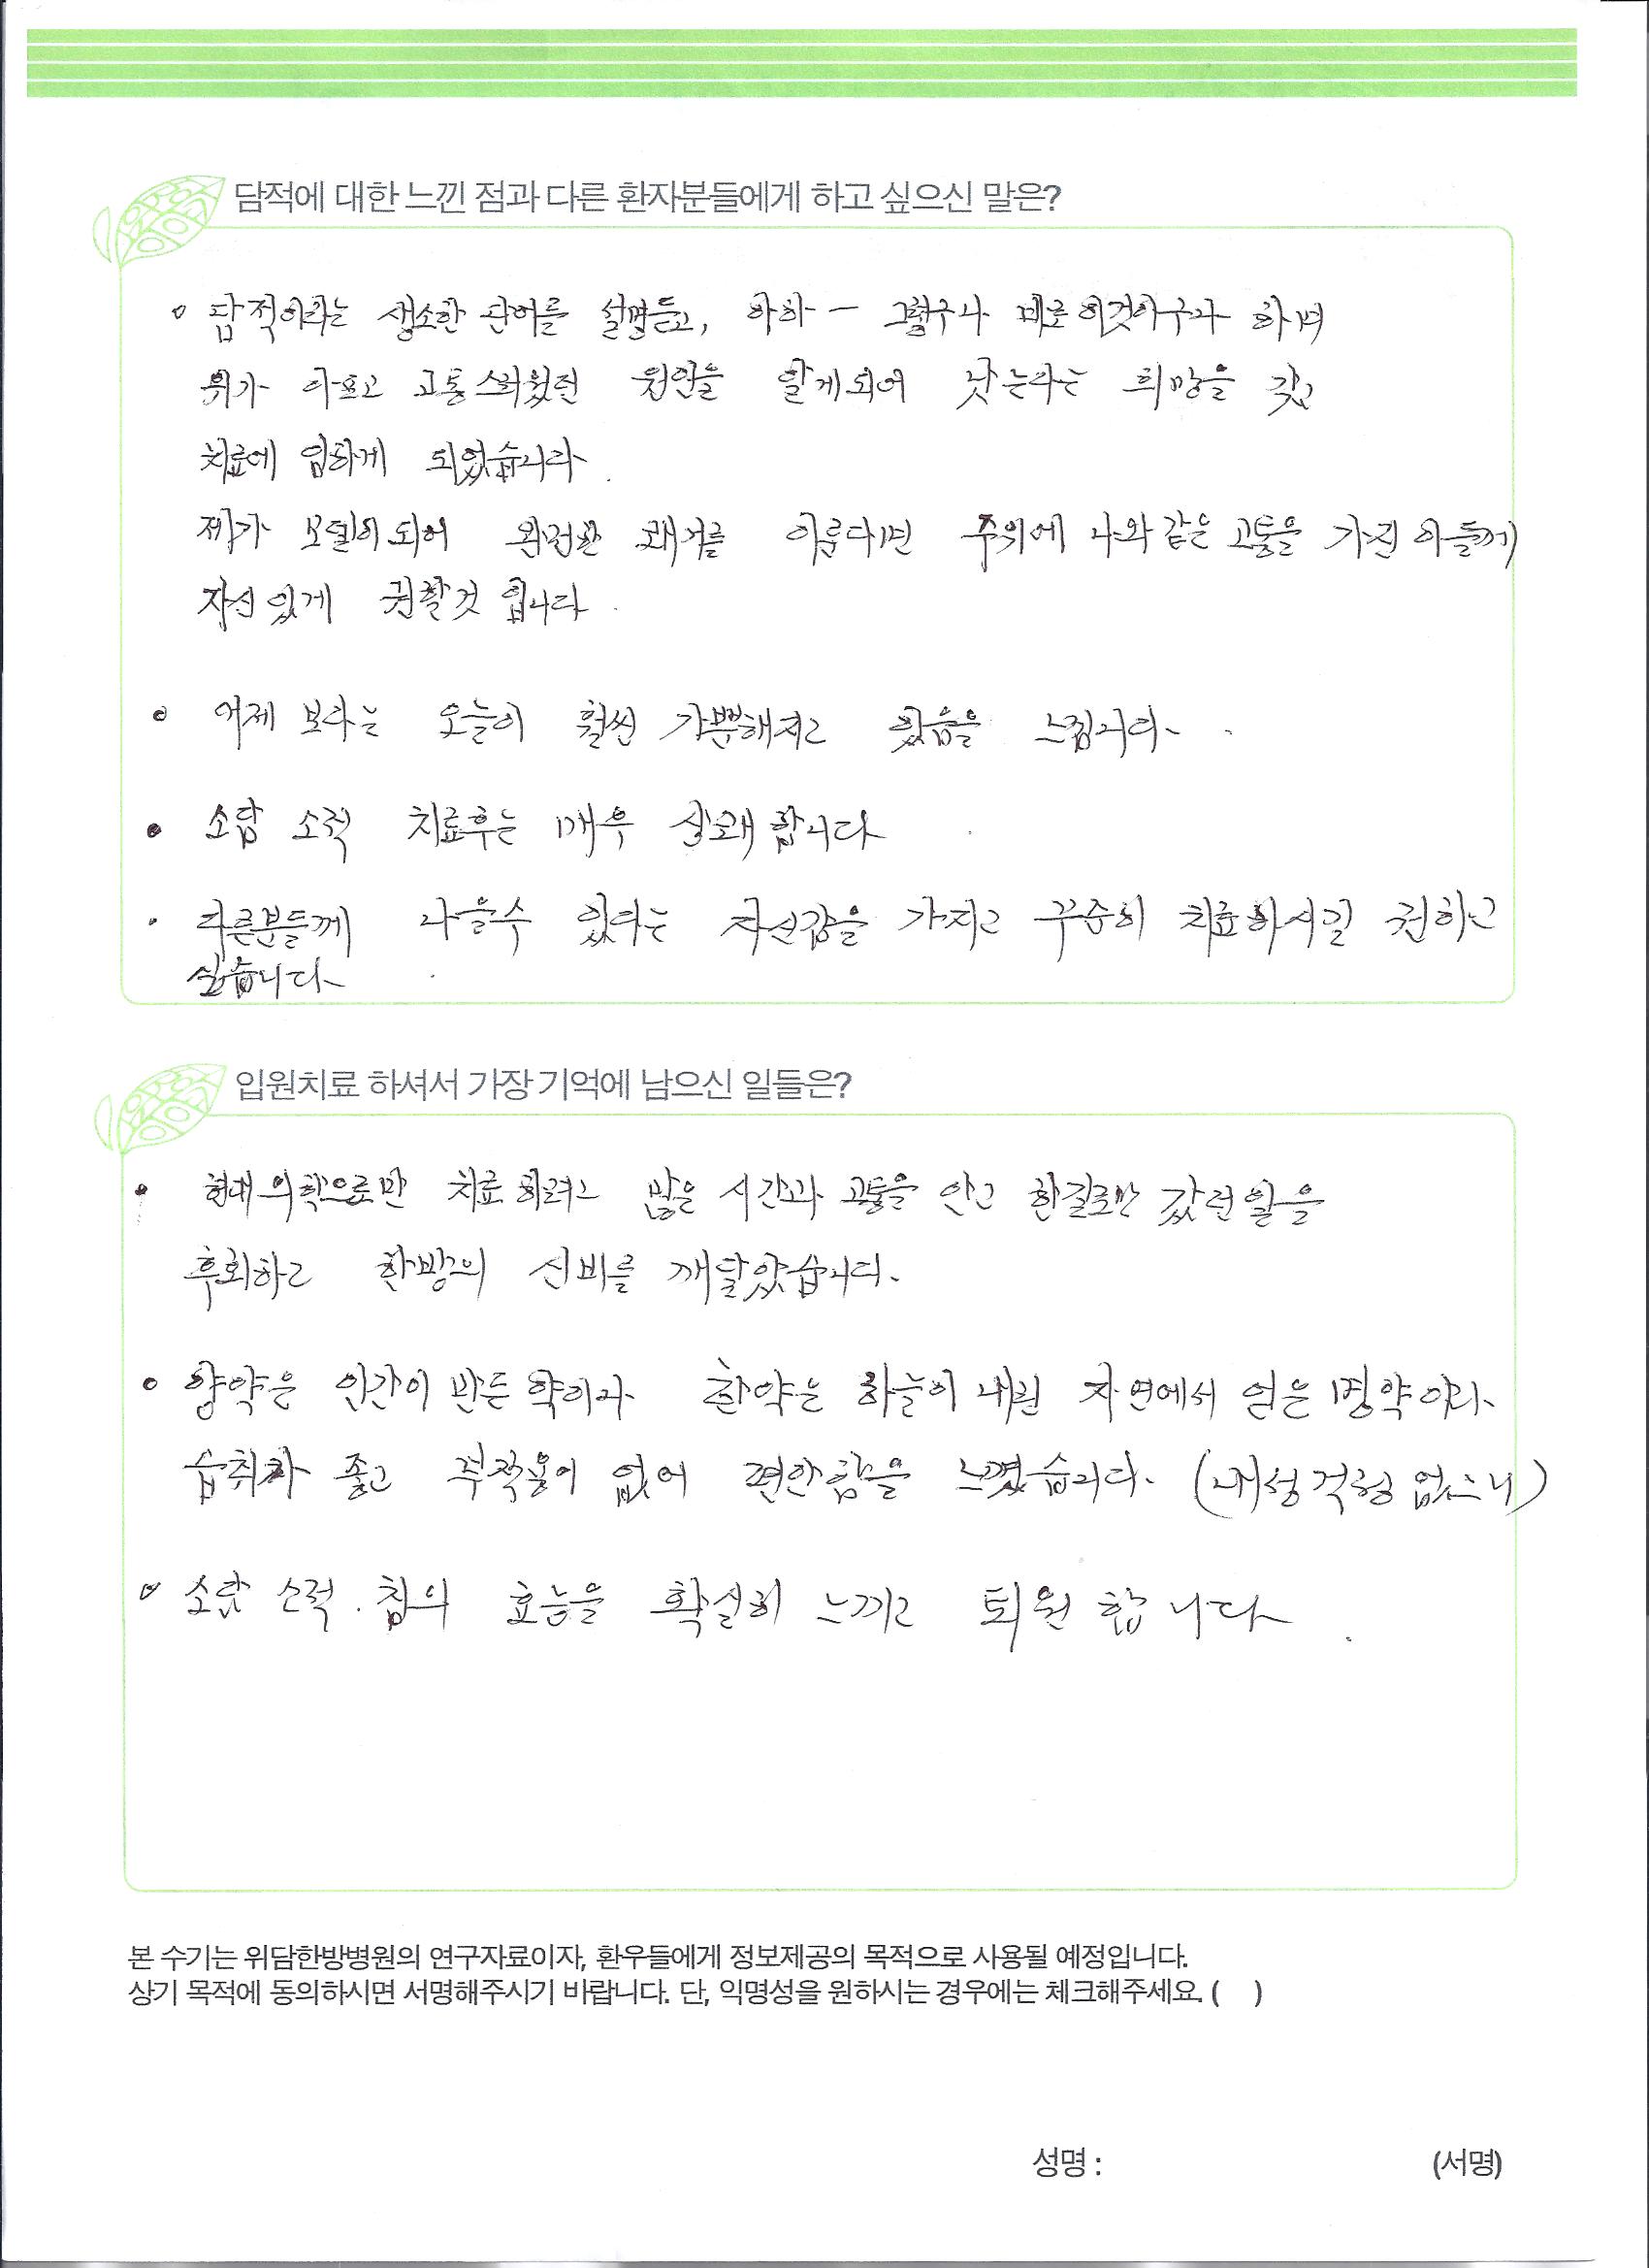 담적에 대한 느낀 점과 다른 환자분들에게 하고 싶으신 말은?
담적이라는 생소한 단어를 설명듣고, 하하 - 그렇구나 바로 이것이구나 하며
위가 아프고 고통스러웠던 원인을 알게되어 낫는다는 희망을 갖고
치료에 임하게 되었습니다.
제가 모델이 되어 완전한 쾌거를 이룬다면 주위에 나와 같은 고통을 가진 이들께
자신있게 권할것 입니다.
어제 보다는 오늘이 훨씬 가뿐해지고 있음을 느낍니다.
소담 소적 치료후는 매우 상쾌합니다.
다른분들께 나을수 있다는 자신감을 가지고 꾸준히 치료하시길 권하고
싶습니다.
입원치료 하셔서 가장 기억에 남으신 일들은?
현대의학으로만 치료하려고 많은 시간과 고통을 안고 한길로만 갔던일을
후회하고 한방의 신비를 깨달았습니다.
양약은 인간이 만든 약이라 한약은 하늘이 내린 자연에서 얻은 명약이라
습취가 좋고 부작용이 없어 편안함을 느꼈습니다. (내성 걱정 없으니)
소담 소적. 침의 효능을 확실히 느끼고 퇴원 합니다.
본 수기는 위담한방병원의 연구자료이자, 환우들에게 정보제공의 목적으로 사용될 예정입니다.
상기 목적에 동의하시면 서명해주시기 바랍니다. 단, 익명성을 원하시는 경우에는 체크해주세요. ( )
성명 : (서명)